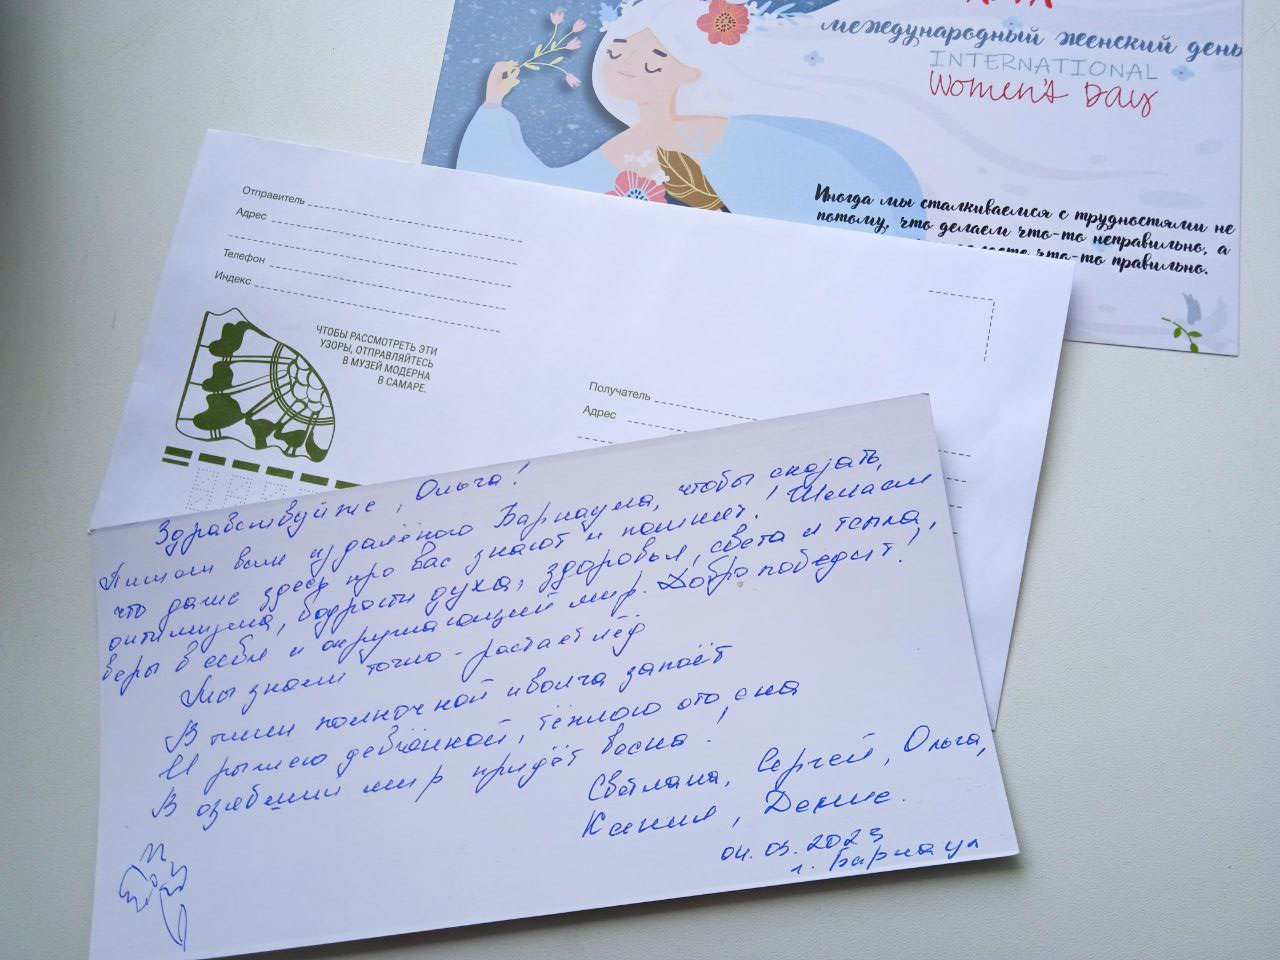 международный женский день
INTERNATIONAL
Women's Day
Иногда мы сталкиваемся с трудностями не
потому, что делаем что-то неправильно, а
что-то правильно.
Отправитель
Адрес
Телефон
Индекс
ЧТОБЫ РАССМОТРЕТЬ ЭТИ
УЗОРЫ, ОТПРАВЛЯЙТЕСЬ
В МУЗЕЙ МОДЕРНА
В САМАРЕ.
Получатель
Адрес
Здравствуйте, Ольга!
Пишем вам из далёкого Барнаула, чтобы сказать,
что даже здесь про вас знают и помнят! Желаем
оптимизма, бодрости духа, здоровья, света и тепла,
веры в себя и окружающий мир. Добро победит!
Мы знаем точно - растает лёд
В тиши полночной иволга запоёт
И рыжею девчонкой, тёплою ото сна
В озябший мир придёт весна!
Светлана, Сергей, Ольга,
Ксения, Денис.
04.03.2023
г. Барнаул